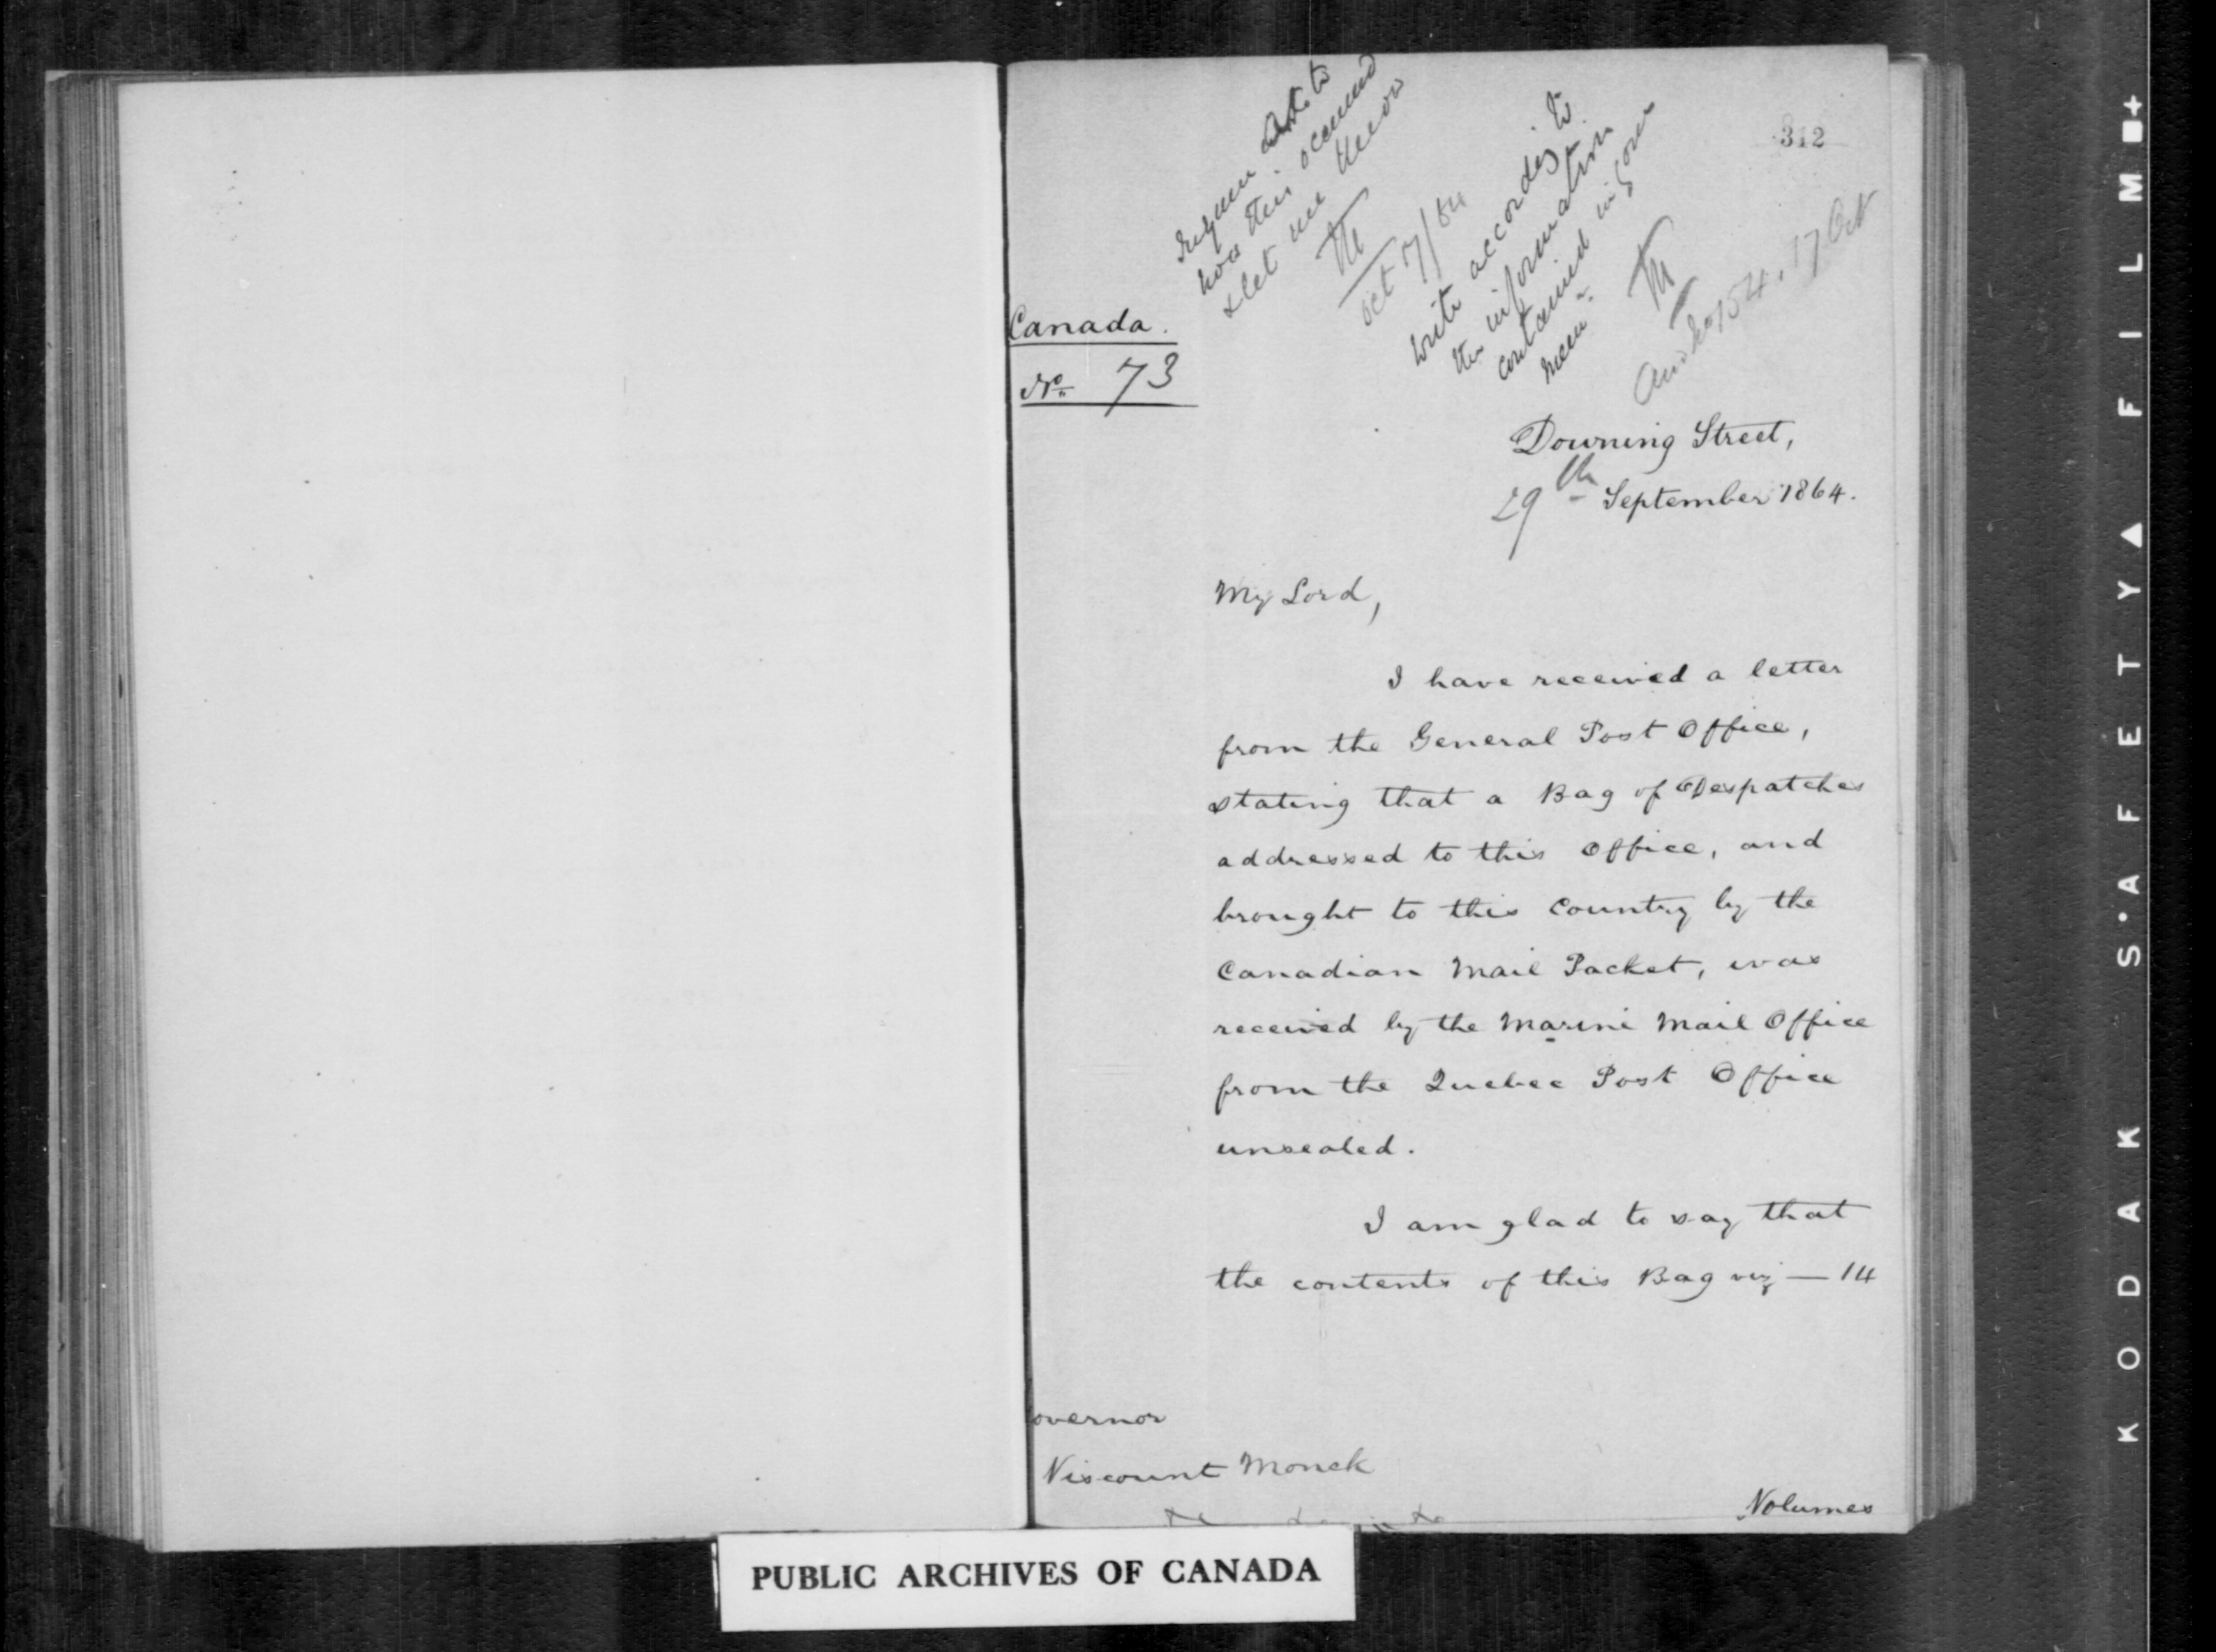 312
Inquire as to
how this occurred
& let me know
M
Oct 17/64
write according to
the information
contained in your
mem
M
154. 17 Oct
Canada.
No. 73
Downing Street,
29th September 1864.
My Lord,
I have received a letter
from the General Post Office,
stating that a Bag of Despatches
addressed to this Office, and
brought to this Country by the
Canadian Mail Packet, was
received by the Marine Mail Office
from the Quebec Post Office
unsealed.
I am glad to say that
the contents of this Bag viz — 14
overnor
Viscount Monck
Volumes
PUBLIC ARCHIVES OF CANADA
KODAK S·AFETY▲FILM■+